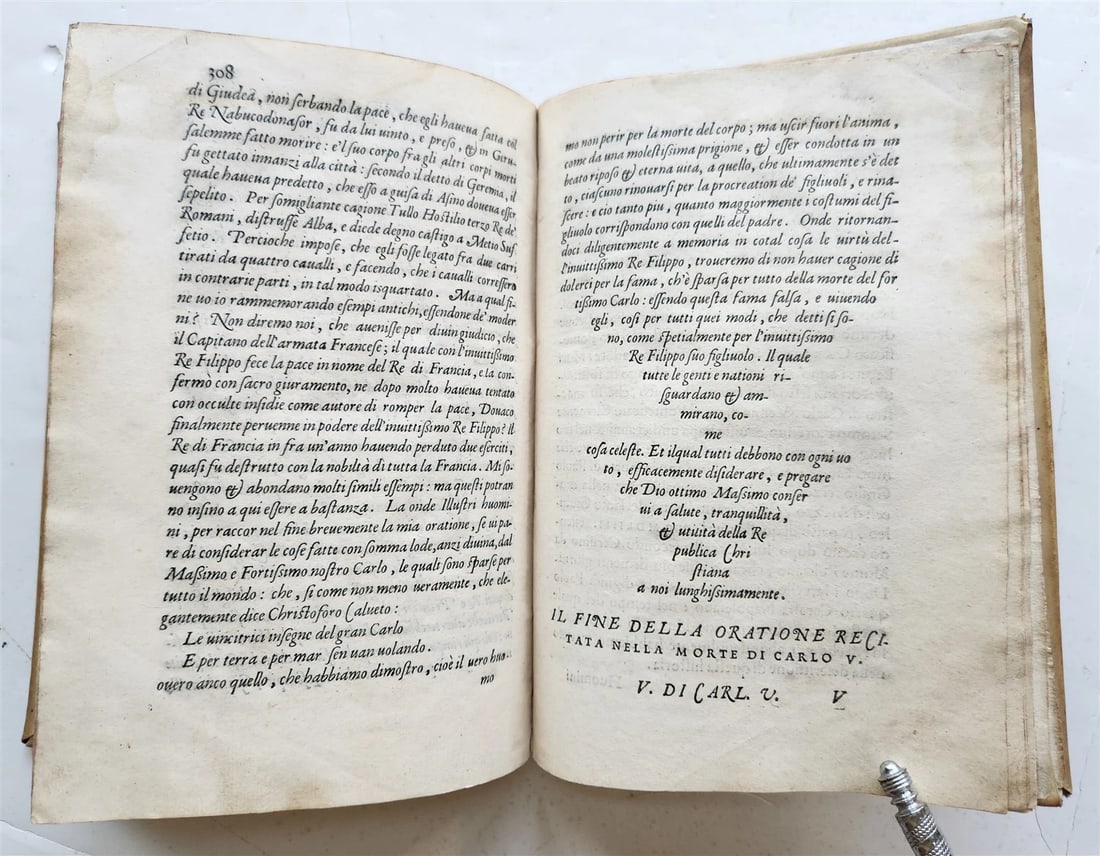 308
di Giudea, non serbando la pace, che egli haueua fatta col
Re Nabucodonasor, fu da lui uinto, e preso, & in Geru-
salemme fatto morire: e'l suo corpo fra gli altri corpi morti
fu gettato innanzi alla città: secondo il detto di Geremia, il
quale haueua predetto, che esso a guisa di Asino doueua esser
sepelito. Per somigliante cagione Tullo Hostilio terzo Re de'
Romani, distrusse Alba, e diede degno castigo a Metio Suf
fetio. Percioche impose, che egli fosse legato fra due carri
tirati da quattro caualli, e facendo, che i caualli corressero
in contrarie parti, in tal modo isquartato. Ma a qual fi-
ne uo io rammemorando esempi antichi, essendone de' moder
ni? Non diremo noi, che auenisse per diuin giudicio, che
il Capitano dell'armata Francese; il quale con l'inuittissimo
Re Filippo fece la pace in nome del Re di Francia, e la con-
fermò con sacro giuramento, ne dopo molto haueua tentato
con occulte insidie come autore di romper la pace, Douaco
finalmente peruenne in podere dell'inuittissimo Re Filippo? Il
Re di Francia in fra un'anno hauendo perduto due eserciti,
quasi fu destrutto con la nobiltà di tutta la Francia. Mi so-
uengono & abondano molti simili essempi: ma questi potran
no insino a qui essere a bastanza. La onde Illustri huomi-
ni, per raccor nel fine breuemente la mia oratione, se ui pa-
re di considerar le cose fatte con somma lode, anzi diuina, dal
Massimo e Fortissimo nostro Carlo, le quali sono sparse per
tutto il mondo: che, si come non meno ueramente, che ele-
gantemente dice Christoforo Calueto:
Le uincitrici insegne del gran Carlo
E per terra e per mar sen uan uolando.
ouero anco quello, che habbiamo dimostro, cioè il uero huo-
mo
mo non perir per la morte del corpo; ma uscir fuori l'anima,
come da una molestissima prigione, & esser condotta in un
beato riposo & eterna uita, a quello, che ultimamente s'è det
to, ciascuno rinouarsi per la procreation de' figliuoli, e rina-
scere: e cio tanto piu, quanto maggiormente i costumi del fi-
gliuolo corrispondono con quelli del padre. Onde ritornan-
doci diligentemente a memoria in cotal cosa le uirtù del-
l'inuittissimo Re Filippo, troueremo di non hauer cagione di
dolerci per la fama, ch'è sparsa per tutto della morte del for
tissimo Carlo: essendo questa fama falsa, e uiuendo
egli, cosi per tutti quei modi, che detti si so-
no, come spetialmente per l'inuittissimo
Re Filippo suo figliuolo. Il quale
tutte le genti e nationi ri-
sguardano & am-
mirano, co-
me
cosa celeste. Et ilqual tutti debbono con ogni uo
to, efficacemente disiderare, e pregare
che Dio ottimo Massimo conser
ui a salute, tranquillità,
& utilità della Re
publica Chri
stiana
a noi lunghissimamente.
IL FINE DELLA ORATIONE RECI-
TATA NELLA MORTE DI CARLO V.
V. DI CARL. V. V